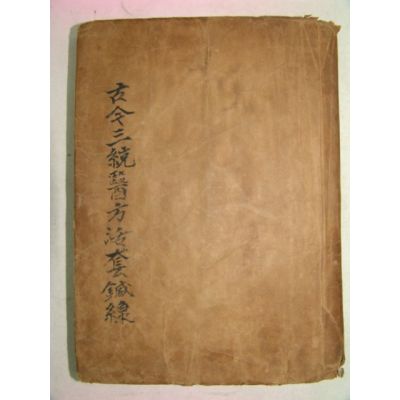 古今三統醫方活套鍼線